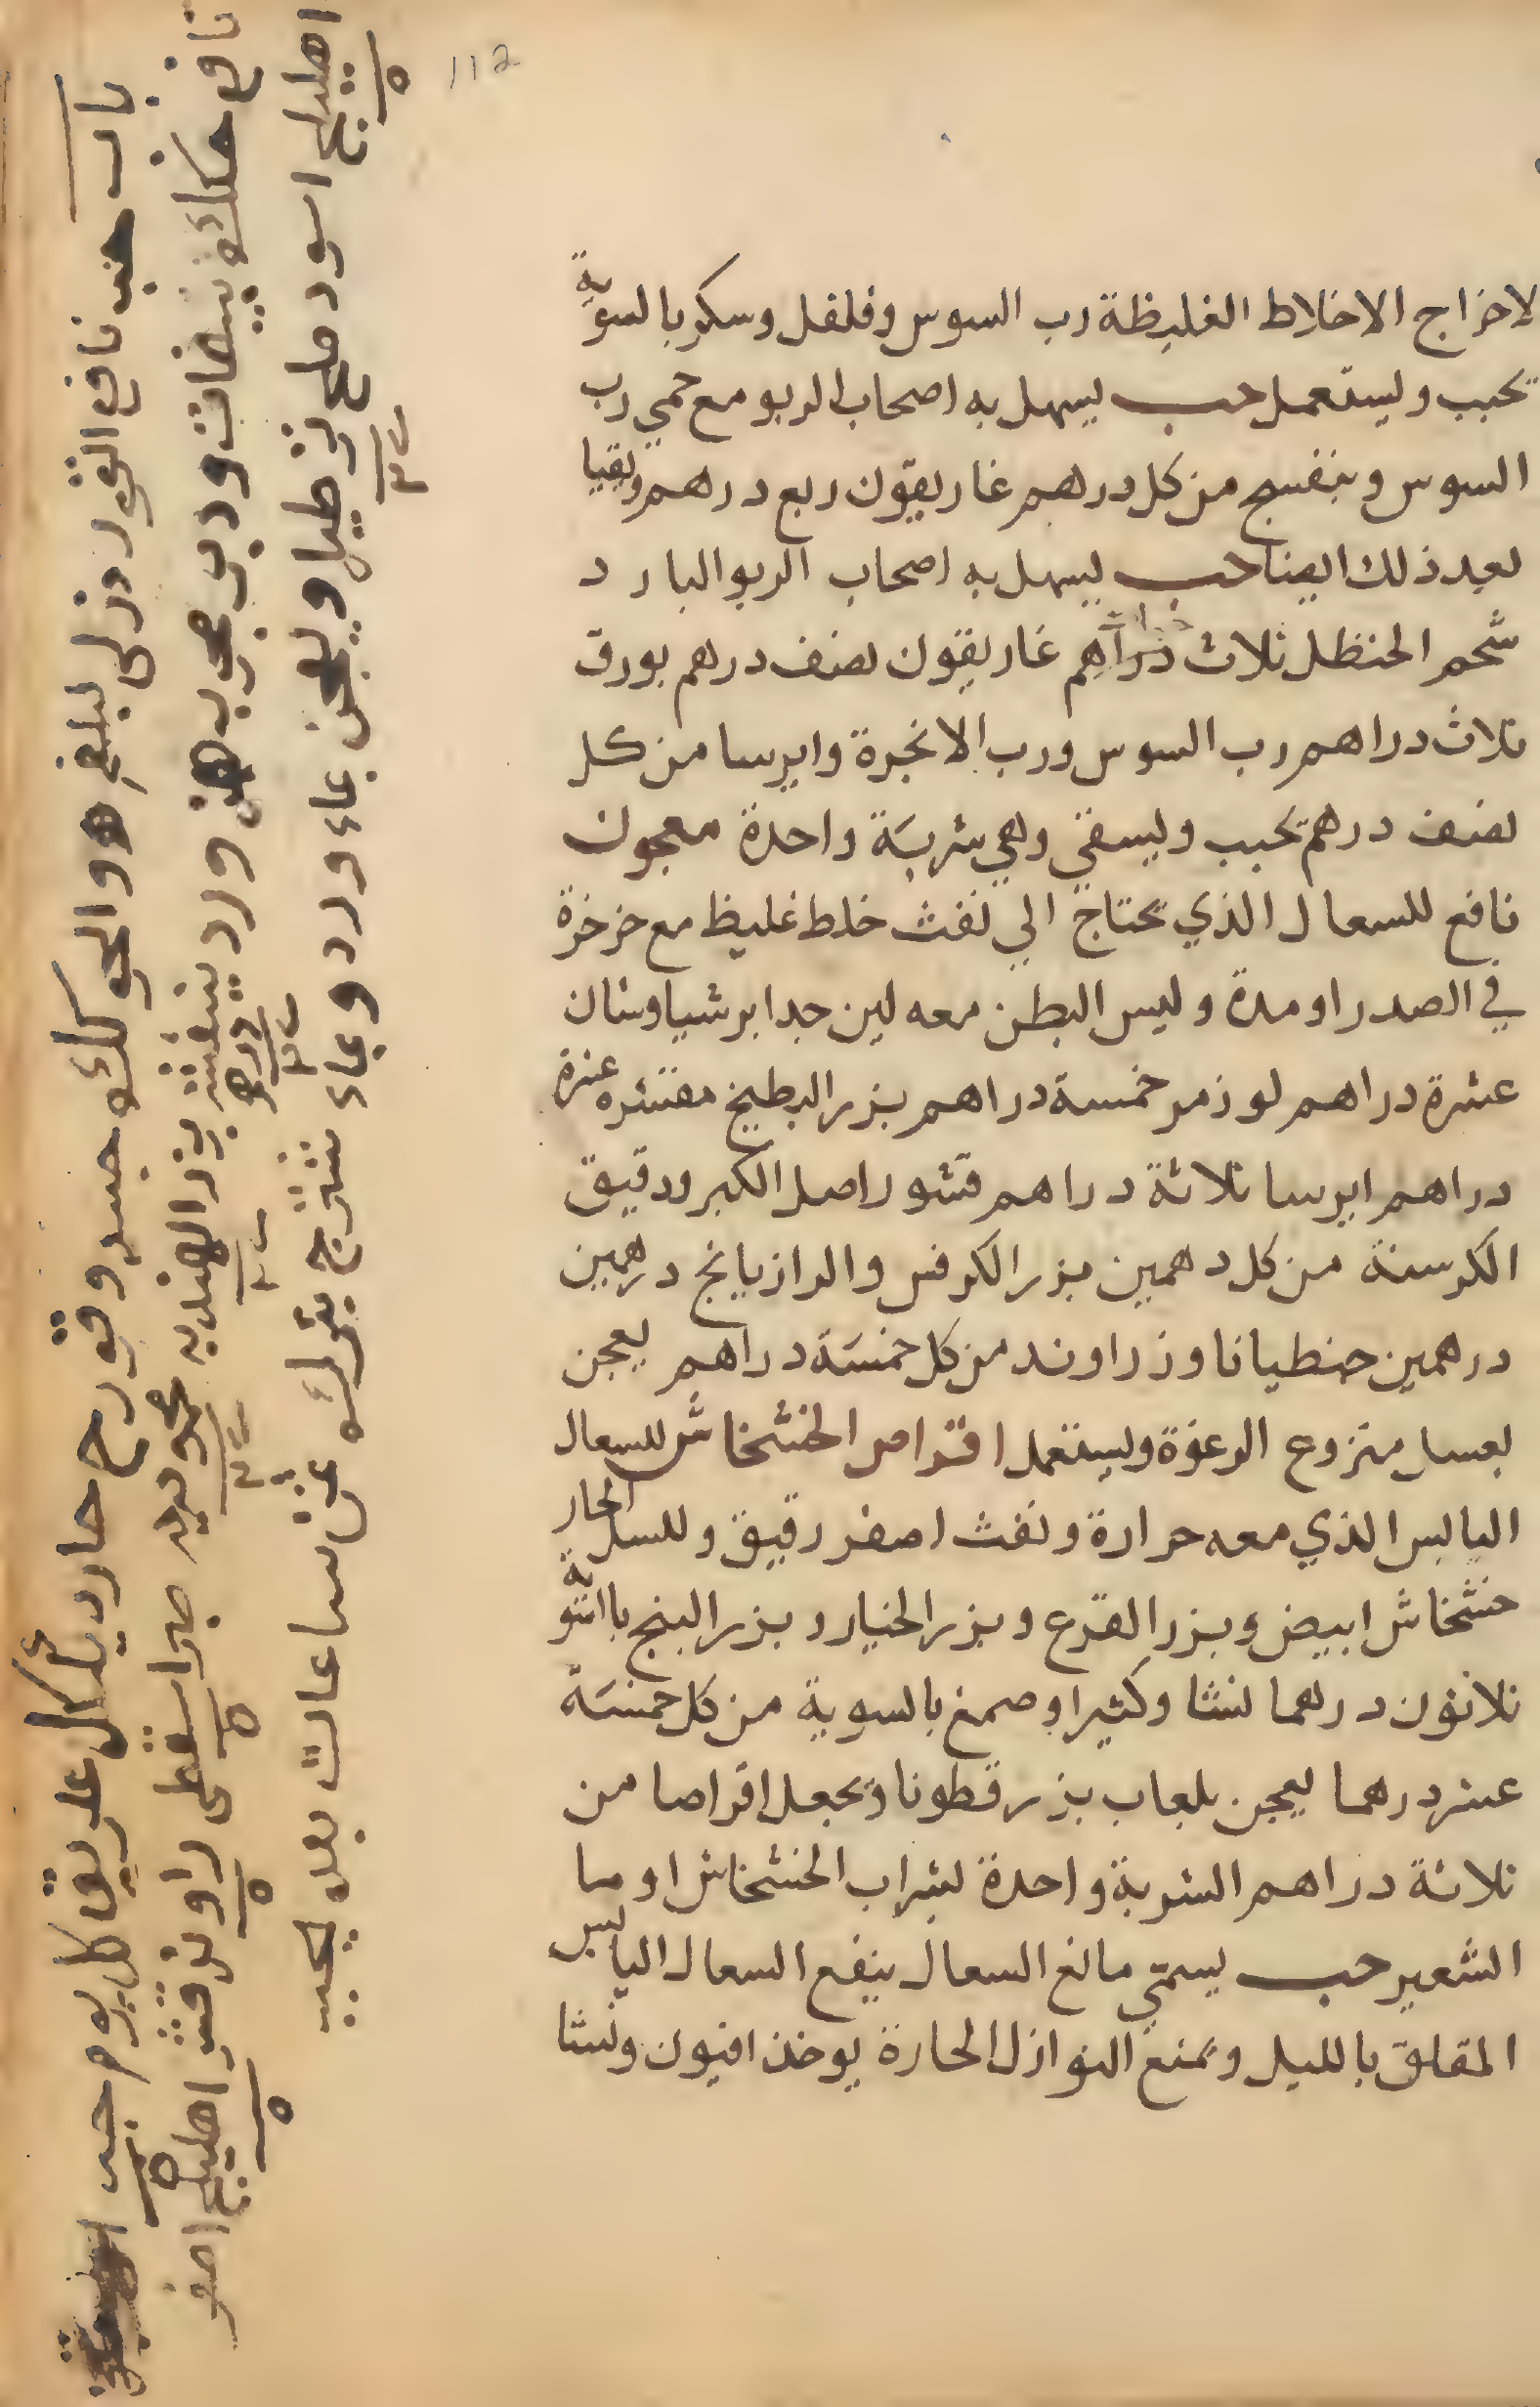 112
لاخراج الاخلاط الغليظة رب السوس وفلفل وسكر بالسوية
تحبب ويستعمل حب يسهل به اصحاب الربو مع حمي رب
السوس وبنفسج من كل درهم غاريقون ربع درهم ويقيا
بعد ذلك ايضا حب يسهل به اصحاب الربو البارد
شحم الحنظل ثلاث دراهم غاريقون نصف درهم بورق
ثلاث دراهم رب السوس ورب الانجرة وايرسا من كل
نصف درهم تحبب ويسقي وهي شربة واحدة معجون
نافع للسعال الذي يحتاج الي نفث خلط غليظ مع خرخرة
في الصدر او مدة وليس البطن معه لين جدا برشياوشان
عشرة دراهم لوز مر خمسة دراهم بزر البطيخ مقشره عشرة
دراهم ايرسا ثلاثة دراهم قشور اصل الكبر ودقيق
الكرسنة من كل دهمين بزر الكرفس والرازيانج درهمين
درهمين جنطيانا وزراوند من كل خمسة دراهم يعجن
بعسل منزوع الرغوة ويستعمل اقراص الخشخاش للسعال
اليابس الذي معه حرارة ونفث اصفر رقيق وللسل الحار
خشخاش ابيض وبزر القرع وبزر الخيار وبزر البنج باالسوية
ثلاثون درهما نشا وكثيرا وصمغ بالسوية من كل خمسة
عشر درهما يعجن بلعاب بزر قطونا وتجعل اقراصا من
ثلاثة دراهم الشربة واحدة بشراب الخشخاش او ما
الشعير حب يسمي مانع السعال ينفع السعال اليابس
المقلق بالليل ويمنع النوازل الحارة يوخذ افيون ونشا
باب حب نافع النقرذ بلغم هو والحوكاك جسد وقورح حار دياكال على يق كل يوم حب
نافع حكك نبيضات ودب مجرب ورد ينسقشر بزر الهنديه محموديه صبر اسقطى راوند قشر اهليلج اصفر
اهليلج اسود ملح ويعجن بماء ورد وبماء شترج يترك ساعات بعد يحبب